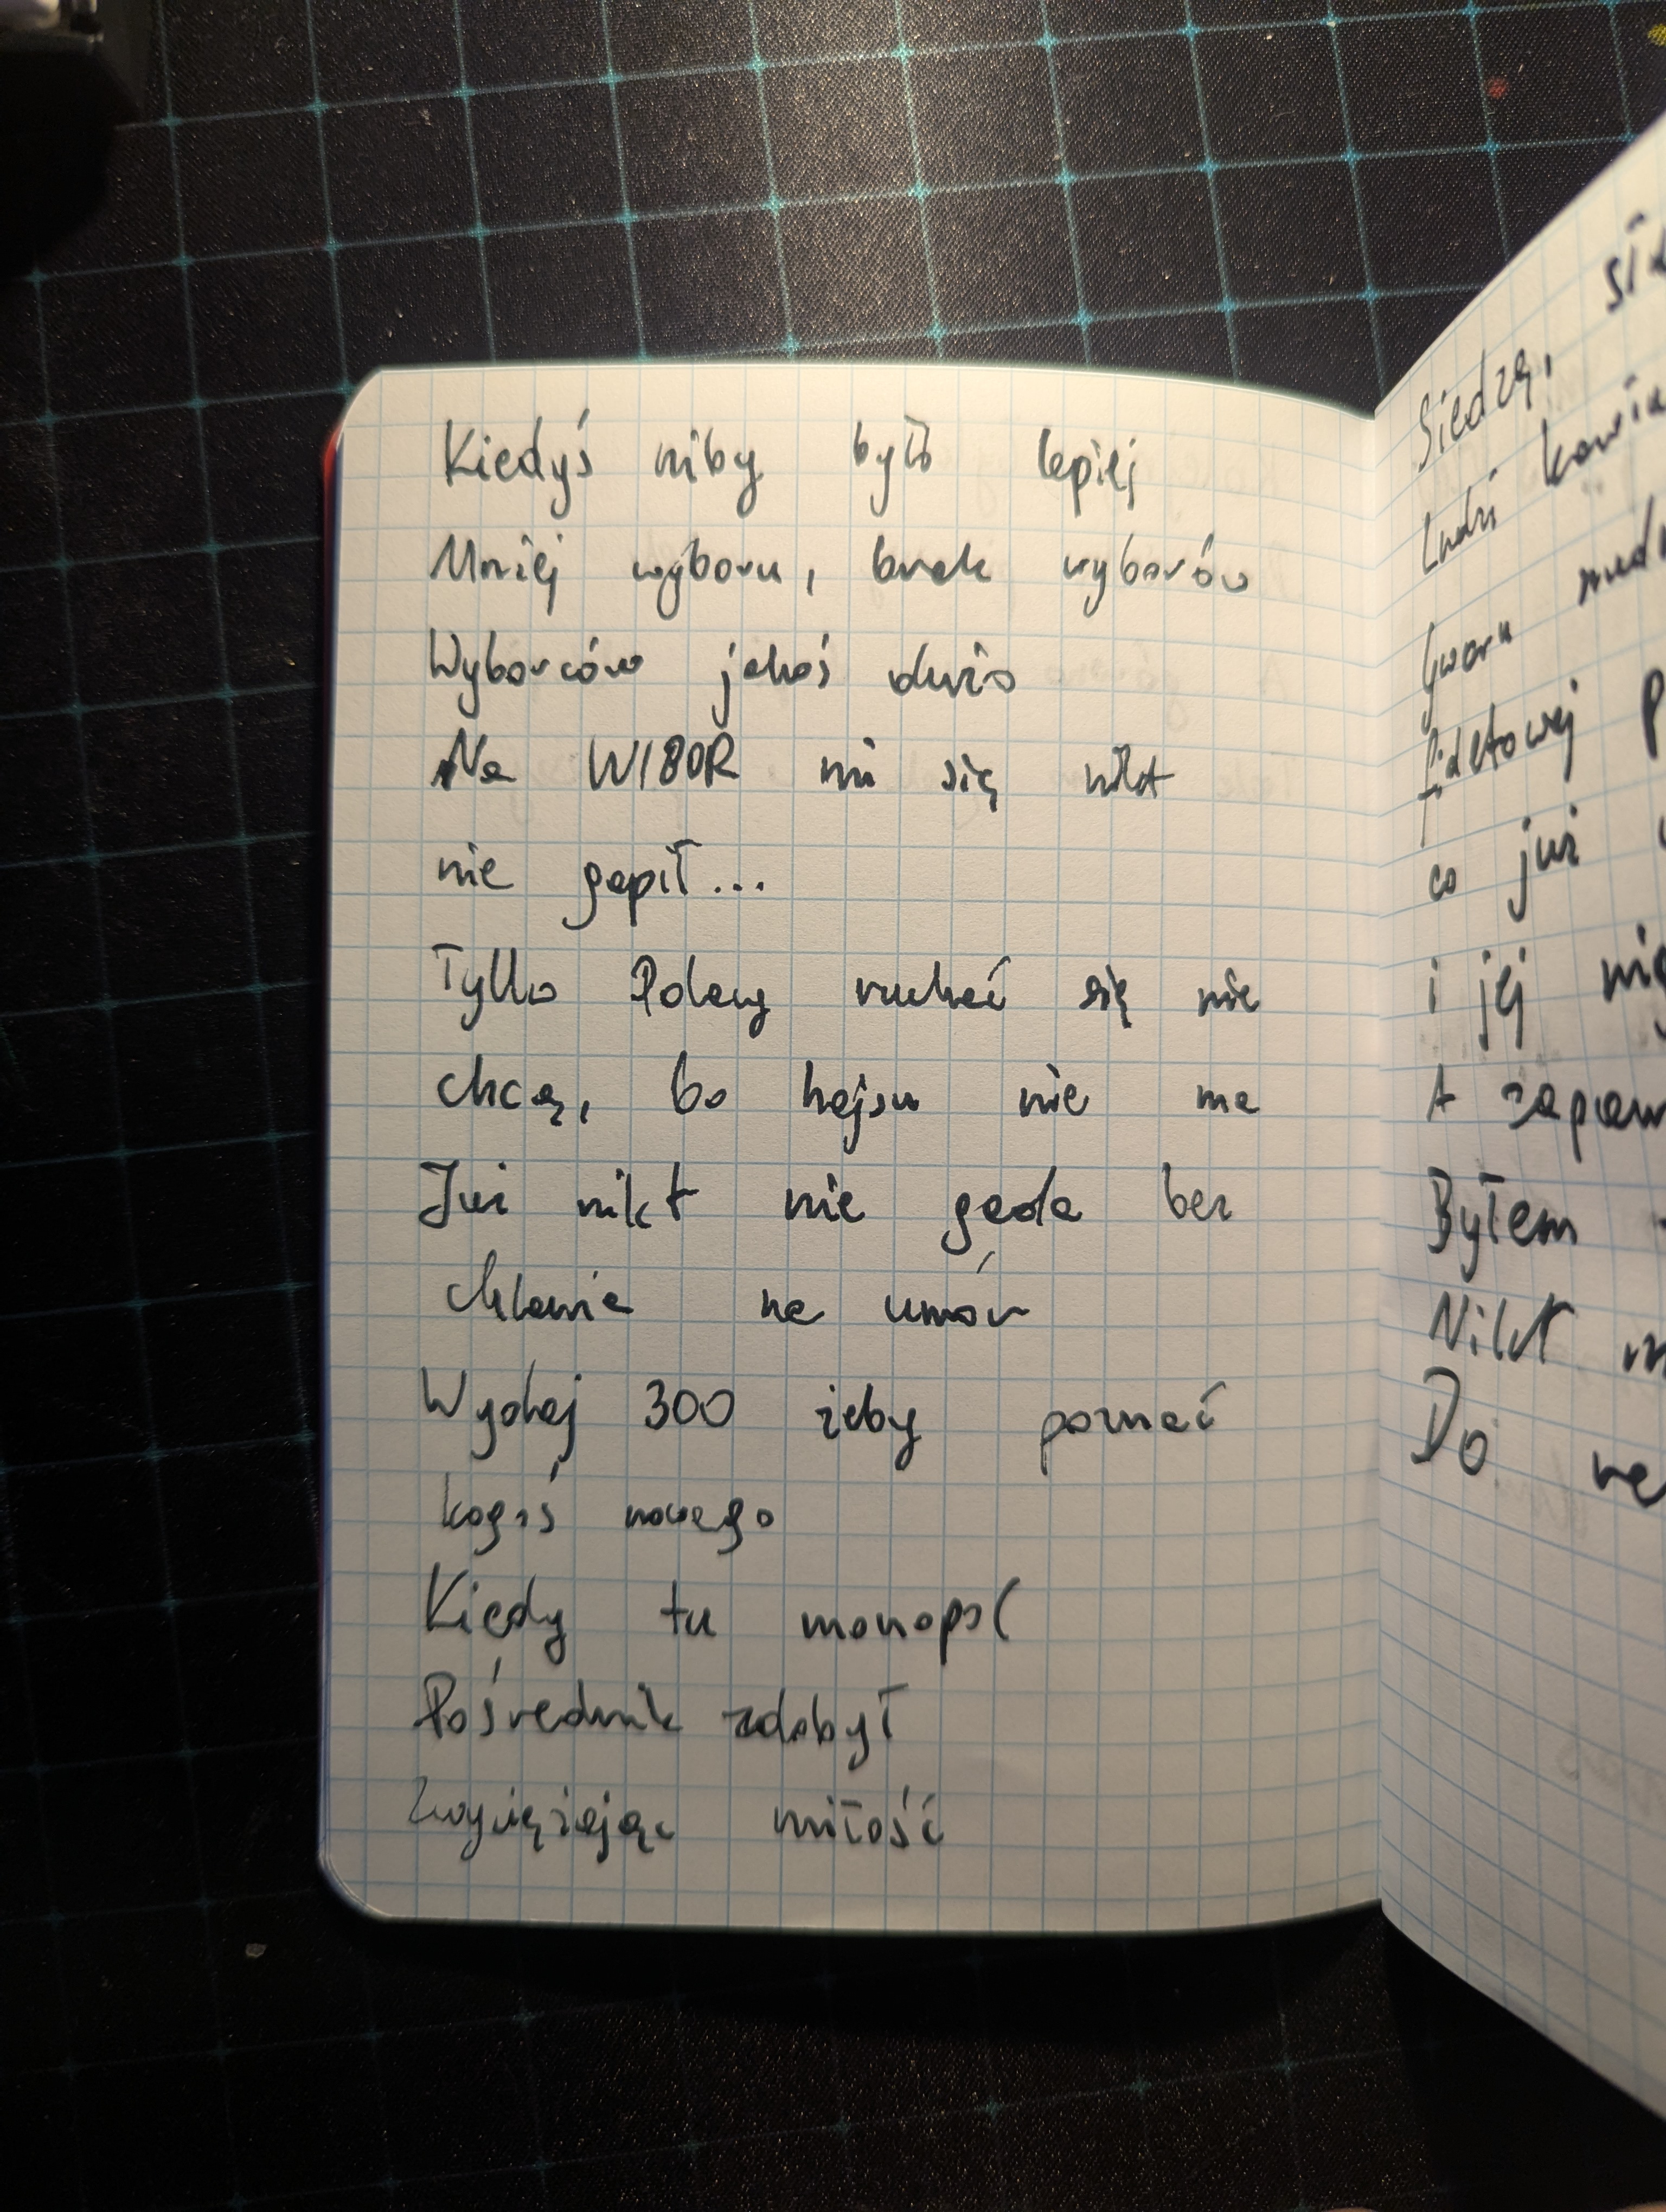 Kiedyś niby było lepiej
Mniej wyboru, brak wyborów
Wyborców jakoś dużo
Na WIBOR mi się nikt
nie gapił...
Tylko Polacy ruchać się nie
chcą, bo hajsu nie ma
Już nikt nie gada bez
chlania na umór
Wydaj 300 żeby poznać
kogoś nowego
Kiedy tu monopol
Pośrednik zdobył
Zwyciężając miłość
Siedzą,
Ludzi
Gwaru
co już
i jej
A
Byłem
Nikt
Do